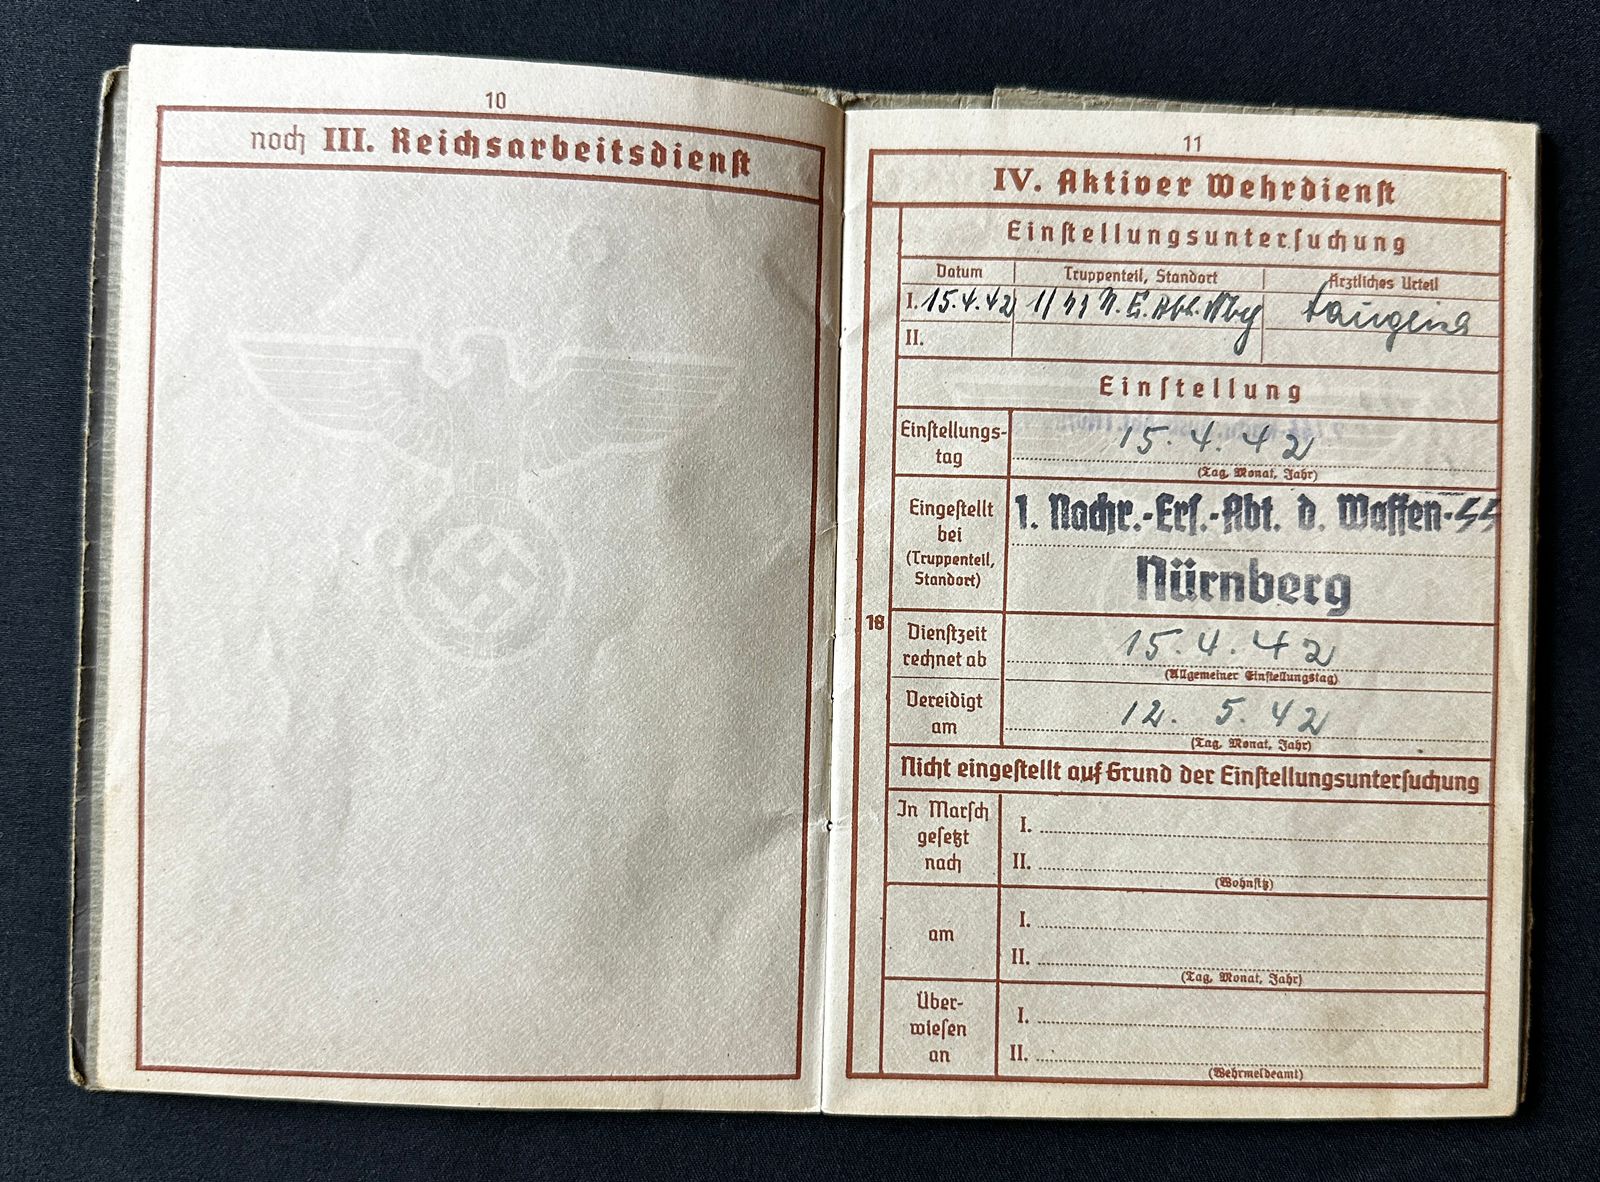 10
noch III. Reichsarbeitsdienst
11
IV. Aktiver Wehrdienst
Einstellungsuntersuchung
Datum Truppenteil, Standort Ärztliches Urteil
I. 15.4.42 N. E. Abt. Nbg
II.
Einstellung
Einstellungs-
tag
15. 4. 42
(Tag, Monat, Jahr)
Eingestellt
bei
(Truppenteil,
Standort)
1. Nachr.-Ers.-Abt. d. Waffen-SS
Nürnberg
18
Dienstzeit
rechnet ab
15. 4. 42
(Allgemeiner Einstellungstag)
Vereidigt
am
12. 5. 42
(Tag, Monat, Jahr)
Nicht eingestellt auf Grund der Einstellungsuntersuchung
In Marsch
gesetzt
nach
I.
II.
(Wohnsitz)
am
I.
II.
(Tag, Monat, Jahr)
Über-
wiesen
an
I.
II.
(Wehrmeldeamt)